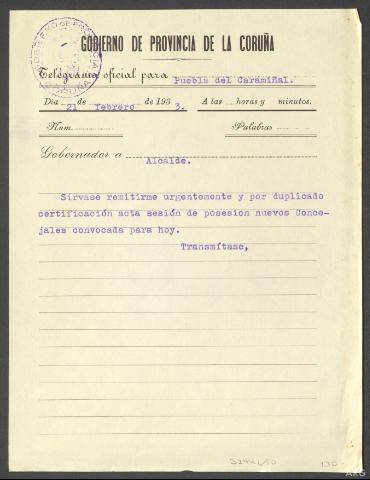 GOBIERNO DE PROVINCIA DE LA CORUÑA
Telégrama oficial para Puebla del Caramiñal.
Día 21 de Febrero de 1933. A las horas y minutos.
Núm. Palabras
Gobernador a Alcalde.
Sírvase remitirme urgentemente y por duplicado
certificación acta sesión de posesion nuevos Conce-
jales convocada para hoy.
Transmítase,
130
ARG